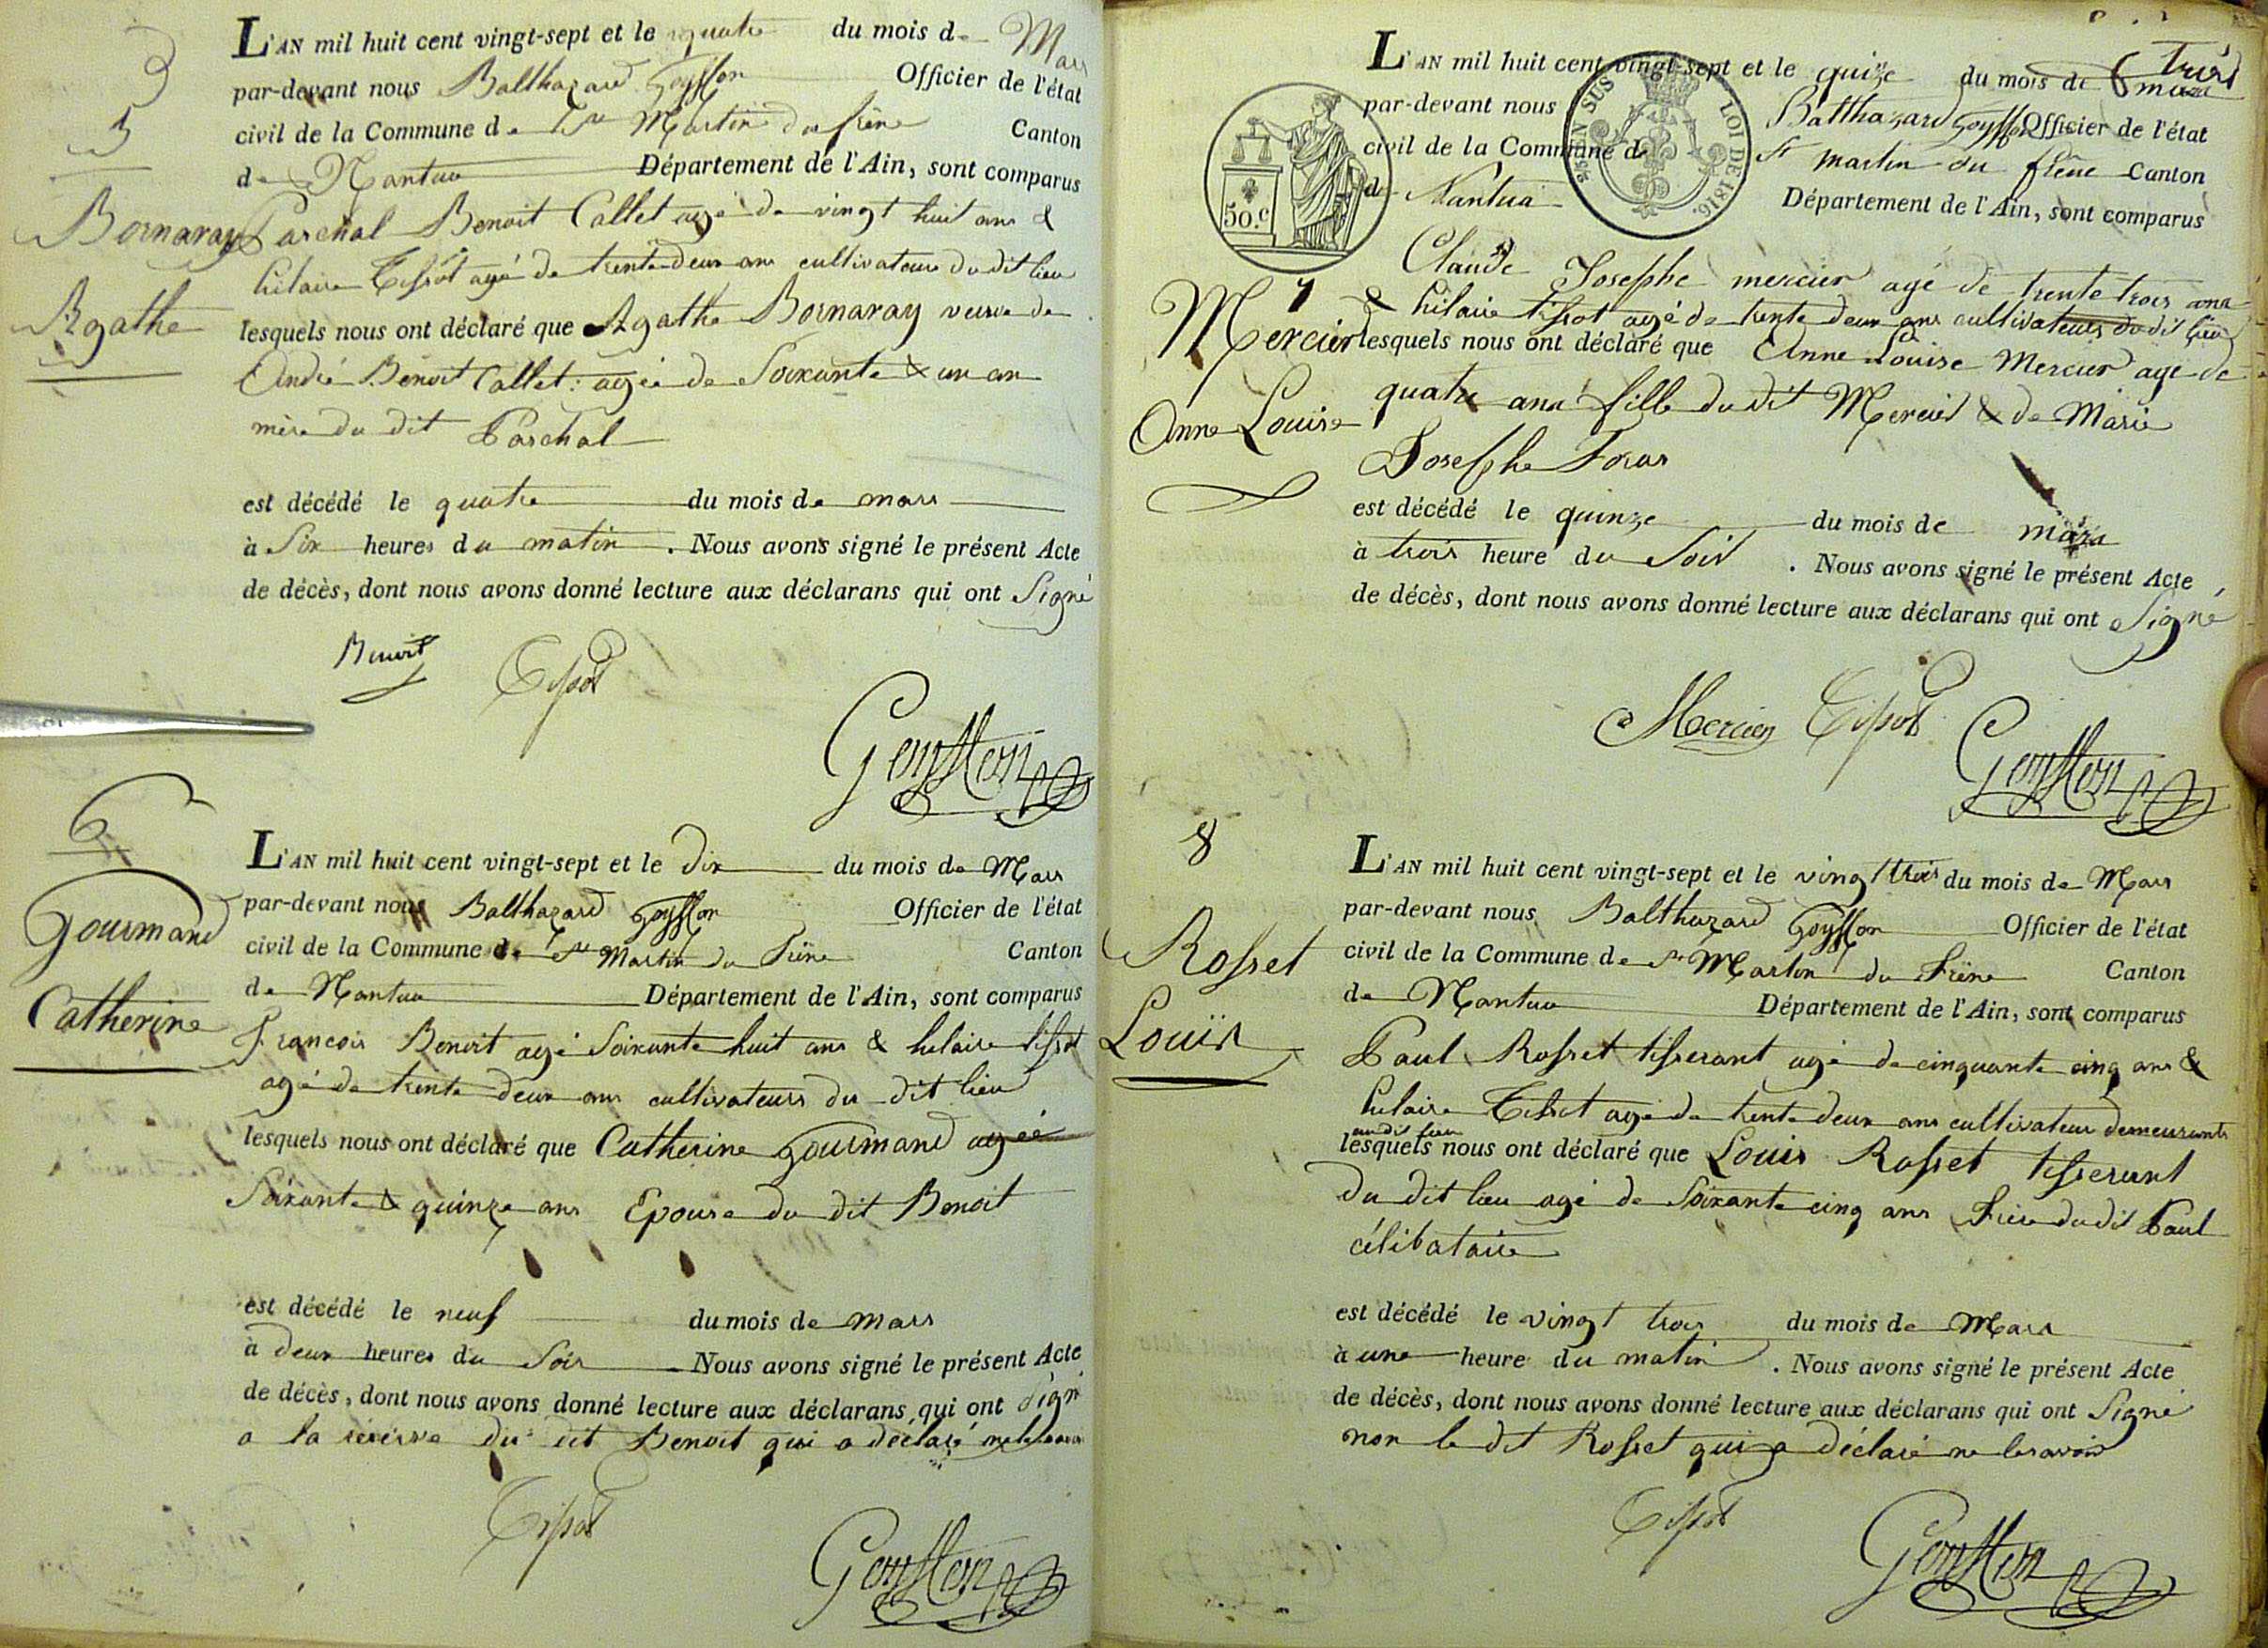 5
Bornaray
Agathe
L'AN mil huit cent vingt-sept et le quatre du mois de Mars
par-devant nous Balthazard Goyffon Officier de l'état
civil de la Commune de St Martin du frêne Canton
de Nantua Département de l'Ain, sont comparus
Paschal Benoit Callet agé de vingt huit ans &
hilaire Tissot agé de trente deux ans cultivateurs du dit lieu
lesquels nous ont déclaré que Agathe Bornaray veuve de
André Benoit Callet agée de Soixante & un an
mère du dit Paschal
est décédé le quatre du mois de mars
à Six heures du matin. Nous avons signé le présent Acte
de décès, dont nous avons donné lecture aux déclarans qui ont Signé
Benoit Tissot
Goyffon
6
Gourmand
Catherine
L'AN mil huit cent vingt-sept et le dix du mois de Mars
par-devant nous Balthazard Goyffon Officier de l'état
civil de la Commune de St Martin du Frêne Canton
de Nantua Département de l'Ain, sont comparus
Francois Benoit agé Soixante huit ans & hilaire tissot
agé de trente deux ans cultivateurs du dit lieu
lesquels nous ont déclaré que Catherine Gourmand agée
Soixante & quinze ans Epouse du dit Benoit
est décédé le neuf du mois de mars
à deux heures du Soir Nous avons signé le présent Acte
de décès, dont nous avons donné lecture aux déclarans qui ont Signé
a la réserve du dit Benoit qui a déclaré ne le savoir
Tissot
Goyffon
trois
50.c
EN SUS
LOI DE 1816.
7
Mercier
Anne Louise
L'AN mil huit cent vingt-sept et le quize du mois de mars
par-devant nous Balthazard Goyffon Officier de l'état
civil de la Commune de St martin du frêne Canton
de Nantua Département de l'Ain, sont comparus
Claude Josephe mercier agé de trente trois ans
& hilaire tissot agé de trente deux ans cultivateurs du dit lieu
lesquels nous ont déclaré que Anne Louise Mercier agé de
quatre ans fille du dit Mercier & de Marie
Josephe Foras
est décédé le quinze du mois de mars
à trois heure du Soir. Nous avons signé le présent Acte
de décès, dont nous avons donné lecture aux déclarans qui ont Signé
Mercier Tissot
Goyffon
8
Rosset
Louïs
L'AN mil huit cent vingt-sept et le vingt trois du mois de Mars
par-devant nous Balthazard Goyffon Officier de l'état
civil de la Commune de St Martin du Frêne Canton
de Nantua Département de l'Ain, sont comparus
Paul Rosset tisserant agé de cinquante cinq ans &
hilaire Tissot agé de trente deux ans cultivateur demeurants
au dit lieu
lesquels nous ont déclaré que Louis Rosset tisserant
du dit lieu agé de Soixante cinq ans Frère du dit Paul
célibataire
est décédé le vingt trois du mois de Mars
à une heure du matin. Nous avons signé le présent Acte
de décès, dont nous avons donné lecture aux déclarans qui ont Signé
non le dit Rosset qui a déclaré ne le savoir
Tissot
Goyffon